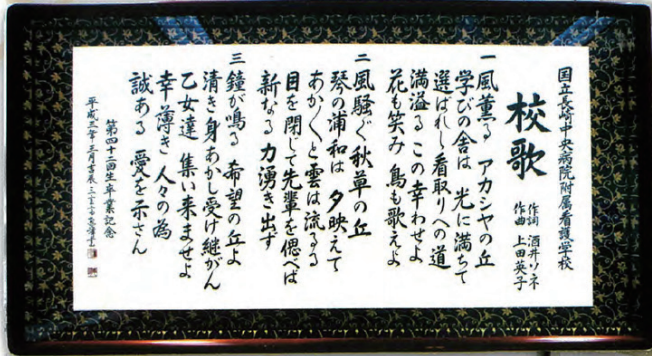 国立長崎中央病院附属看護学校
校歌
作詞 酒井ソネ
作曲 上田英子
一 風薫る アカシヤの丘
学びの舎は 光に満ちて
選ばれし看取りへの道
満溢る この幸わせよ
花も笑み 鳥も歌えよ
二 風騒ぐ秋草の丘
琴の浦和は 夕映えて
あか〱と雲は流るる
目を閉じて先輩を偲べば
新なる 力湧き出す
三 鐘が鳴る 希望の丘よ
清き身あかし受け継がん
乙女達 集い来ませよ
幸薄き 人々の為
誠ある 愛を示さん
第四十二回生卒業記念
平成三年三月吉辰